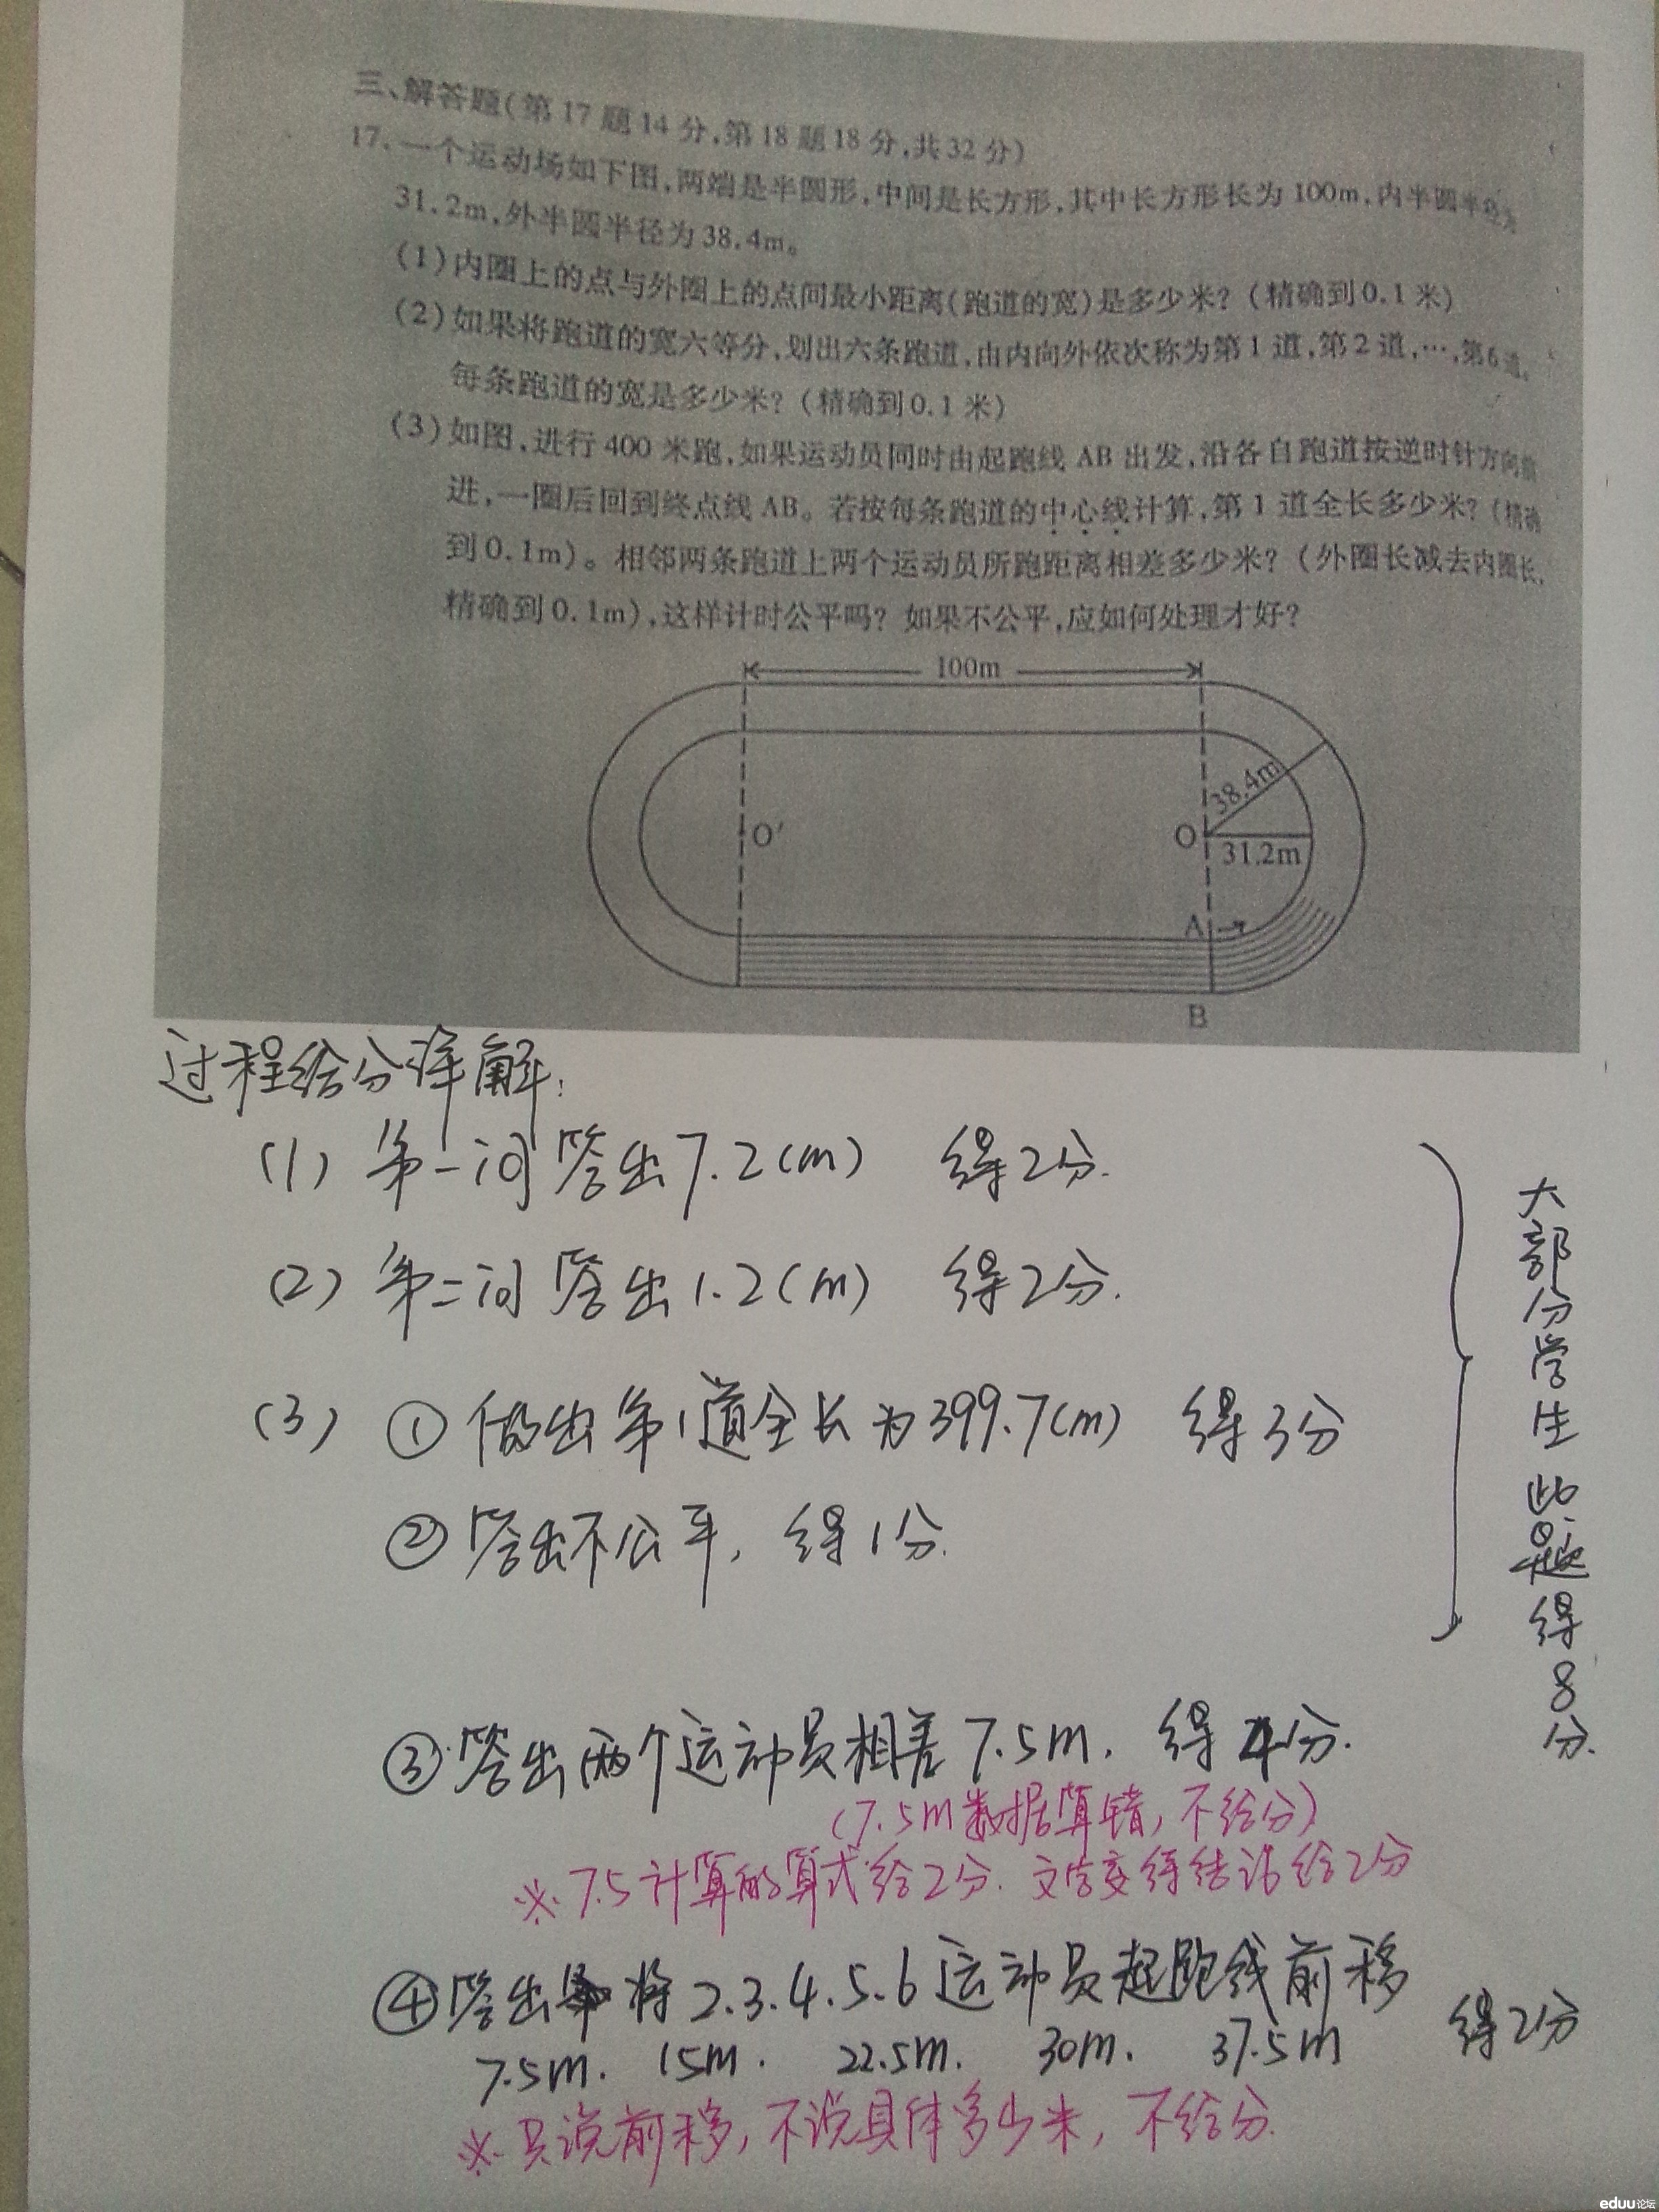 三、解答题(第17题14分,第18题18分,共32分)
17.一个运动场如下图,两端是半圆形,中间是长方形,其中长方形长为100m,内半圆半径为
31.2m,外半圆半径为38.4m。
(1)内圈上的点与外圈上的点间最小距离(跑道的宽)是多少米?(精确到0.1米)
(2)如果将跑道的宽六等分,划出六条跑道,由内向外依次称为第1道,第2道,…,第6道。
每条跑道的宽是多少米?(精确到0.1米)
(3)如图,进行400米跑,如果运动员同时由起跑线AB出发,沿各自跑道按逆时针方向前
进,一圈后回到终点线AB。若按每条跑道的中心线计算,第1道全长多少米?(精确
到0.1m)。相邻两条跑道上两个运动员所跑距离相差多少米?(外圈长减去内圈长,
精确到0.1m),这样计时公平吗?如果不公平,应如何处理才好?
100m
38.4m
O'
O
31.2m
A
B
过程给分详解:
(1) 第一问答出7.2(m) 得2分.
(2) 第二问答出1.2(m) 得2分.
(3) ①做出第1道全长为399.7(m) 得3分
②答出不公平, 得1分.
大部分学生此题得8分.
③答出两个运动员相差7.5m. 得4分.
(7.5m数据算错,不给分)
※7.5计算的算式给2分.文字变得结论给2分
④答出将2.3.4.5.6运动员起跑线前移
7.5m. 15m. 22.5m. 30m. 37.5m 得2分
※只说前移,不说具体多少米,不给分.
eduu论坛